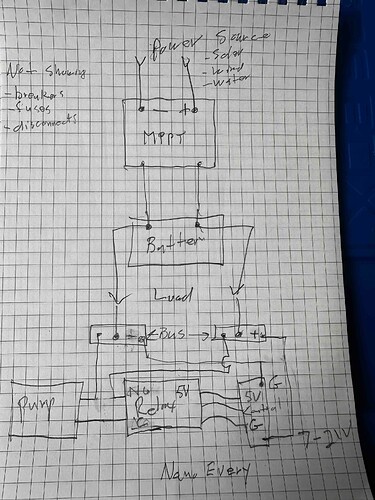 Power Source
- Solar
- Wind
- Water
Not showing
- breakers
- fuses
- disconnects
- +
MPPT
Battery
Load
- <BUS> +
Pump
NO 5V
Relay
C
G
5V
G
7-21V
Nano Every